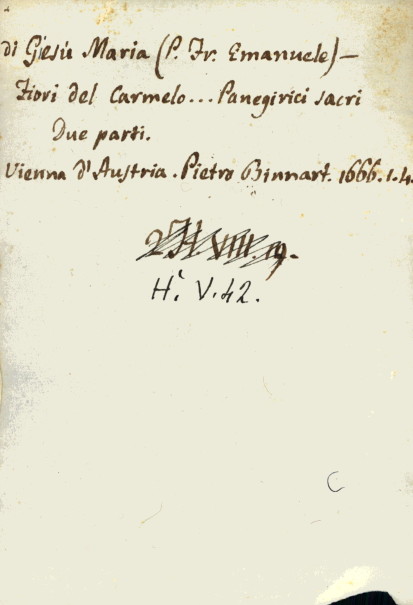 di Giesù Maria (P. Fr. Emanuele) —
Fiori del Carmelo... Panegirici sacri
Due parti.
Vienna d'Austria. Pietro Binnart. 1666. 1. 4.
VIII. 19.
H. V. 42.